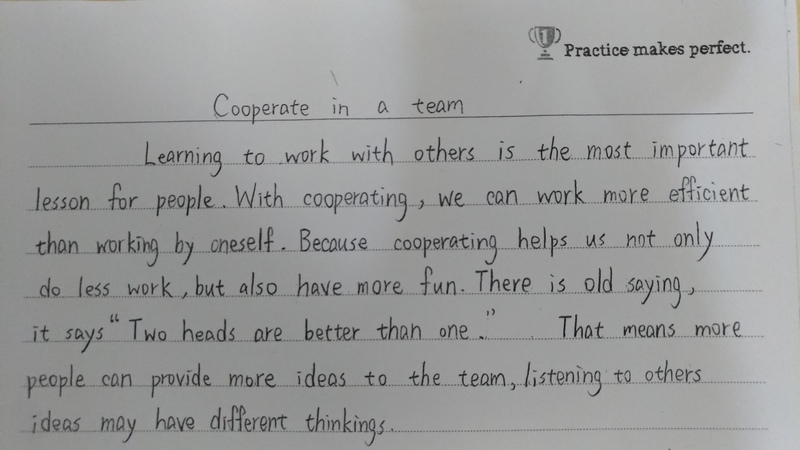 Practice makes perfect.
Cooperate in a team
Learning to work with others is the most important
lesson for people. With cooperating, we can work more efficient
than working by oneself. Because cooperating helps us not only
do less work, but also have more fun. There is old saying,
it says “Two heads are better than one.” That means more
people can provide more ideas to the team, listening to others
ideas may have different thinkings.